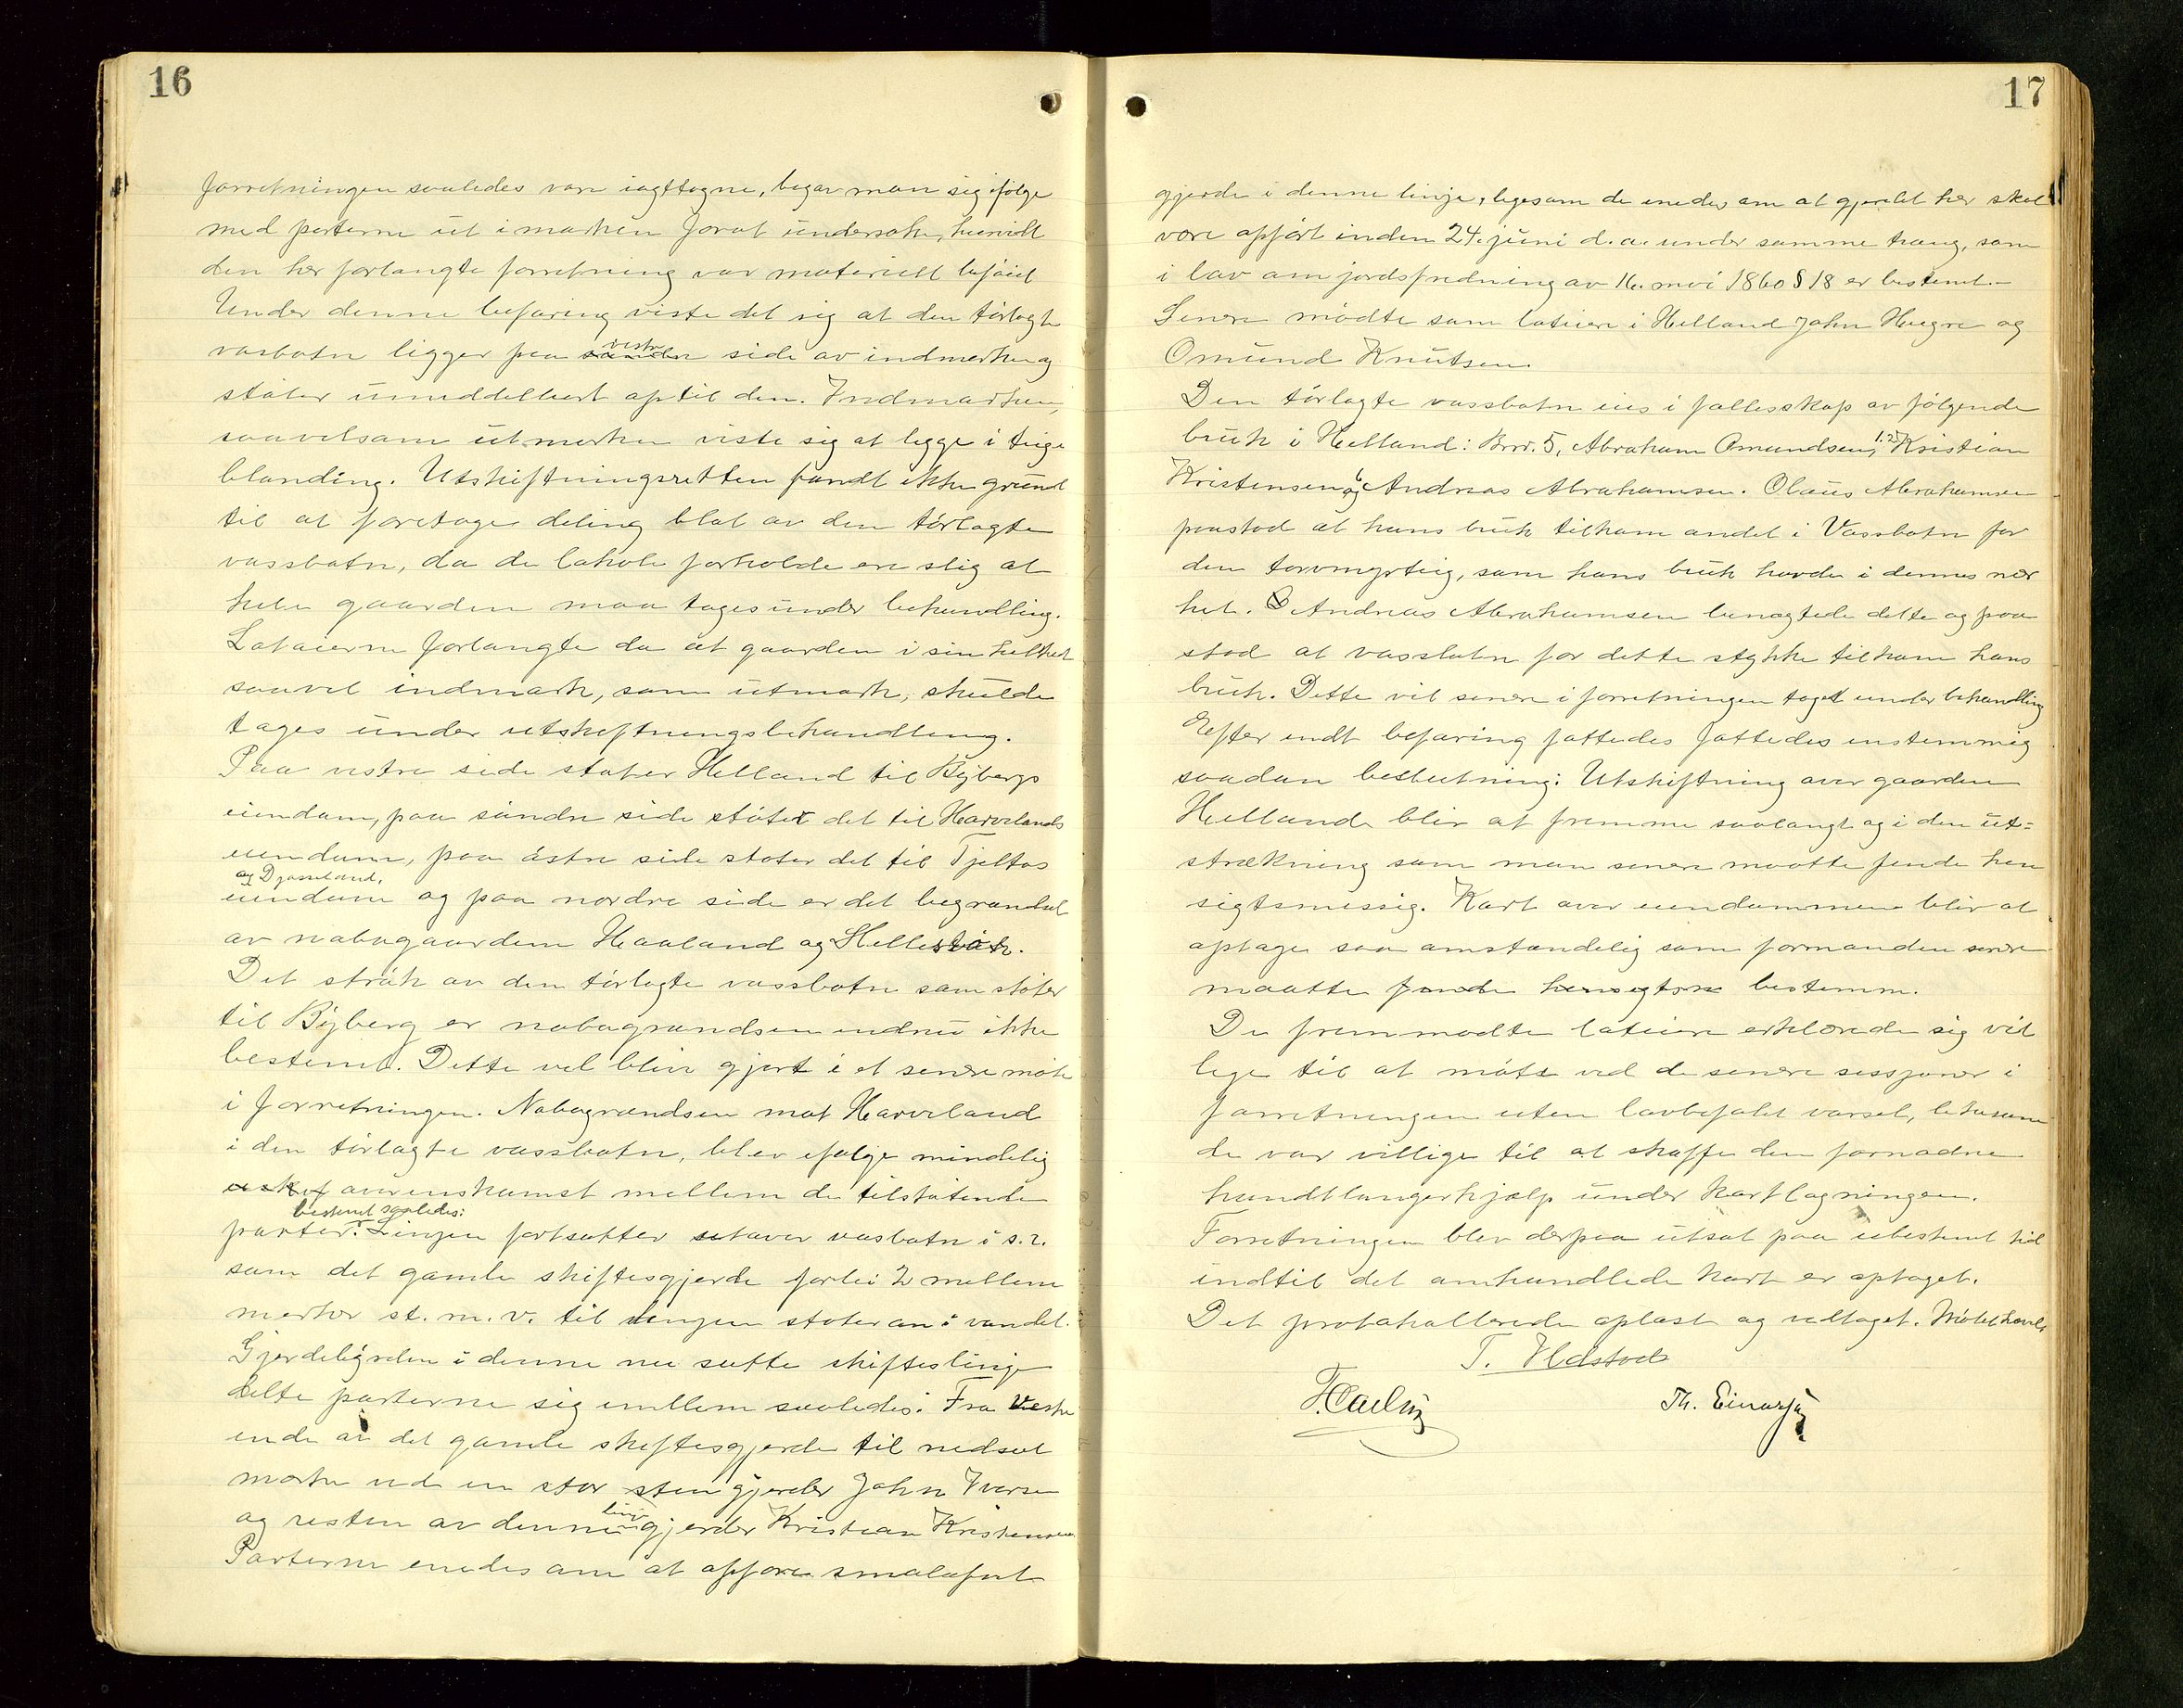 16
forretningen saaledes vare iagttagne, begav man sig ifølge
med parterne ut i marken forat undersøke, hvorvidt
den her forlangte forretning var materiell beføiet
Under denne befaring viste det sig at den tørlagte
vasbotn ligger paa søndre vestre side av indmarken og
støter umiddelbart op til den. Indmarken,
saavelsom utmarken viste sig at ligge i teige
blanding. Utskiftningsretten fandt ikke grund
til at foretage deling blot av den tørlagte
vassbotn, da de lokale forholde ere slig at
hele gaarden maa tages under behandling.
Loteierne forlangte da at gaarden i sin helhet
saavel indmark, som utmark, skulde
tages under utskiftningsbehandling.
Paa vestre side støter Helland til Bybergs
eiendom, paa søndre side støter det til Harvelands
eiendom, paa østre side støter det til Tjeltas
og Djøseland,
eiendom og paa nordre side er det begrændset
av nabogaardene Haaland og Hellestø.
Det strøk av den tørlagte vassbotn som støter
til Byberg er nabogrændsen endnu ikke
bestemt. Dette vil blive gjort i et senere møte
i forretningen. Nabogrændsen mot Harveland
i den tørlagte vassbotn, blev ifølge mindelig
overenskomst mellem de tilstøtende
bestemt saaledes:
parter. Linjen fortsætter utover vasbotn i s. r.
som det gamle skiftesgjerde forbi 2 mellem
merker st. m. v. til linjen støter an i vandet.
Gjerdebyrden i denne nu satte skifteslinje
delte parterne sig imellem saaledes: Fra vestre
ende av det gamle skiftesgjerde til nedsat
merke ved en stor sten gjerder John Iversen
linje
og resten av denne gjerder Kristian Kristensen
Parterne enedes om at opføre smalefrit
17
gjerde i denne linje, ligesom de enedes om at gjerdet her skal
være opført inden 24. juni d.a. under samme tvang, som
i lov om jordsfredning av 16. mai 1860 § 18 er bestemt.-
Senere mødte som loteiere i Helland John Haegre og
Omund Knutsen.
Den tørlagte vassbotn eies i fællesskap av følgende
bruk i Helland: Brn. 5, Abraham Omundsen, 1.2 Kristian
Kristensen og 6 Andreas Abrahamsen. Olaus Abrahamsen
paastod at hans bruk tilkom andel i Vassbotn for
den torvmyrteig, som hans bruk havde i dennes nær
het. Andreas Abrahamsen benægtede dette og paa
stod at vassbotn for dette stykke tilkom hans
bruk. Dette vil senere i forretningen taget under behandling
Efter endt befaring fattedes fattedes enstemmig
saadan beslutning: Utskiftning over gaarden
Helland blir at fremme saalangt og i den ut=
strækning som man senere maatte finde hen
sigtsmessig. Kart over eiendommene blir at
optages saa omstændelig som formanden senere
maatte finde hensigtsm bestemme.
De fremmødte loteiere erklærede sig vil
lige til at møte ved de senere sessjoner i
forretningen uten lovbefalet varsel, likesom
de var villige til at skaffe den fornødne
handtlangerhjælp under kartlagningen.
Forretningen blev derpaa utsat paa ubestemt tid
indtil det omhandlede kart er optaget.
Det protokollerede oplæst og vedtaget. Møtet hævet
T. Ildstad
Th. Einarsen